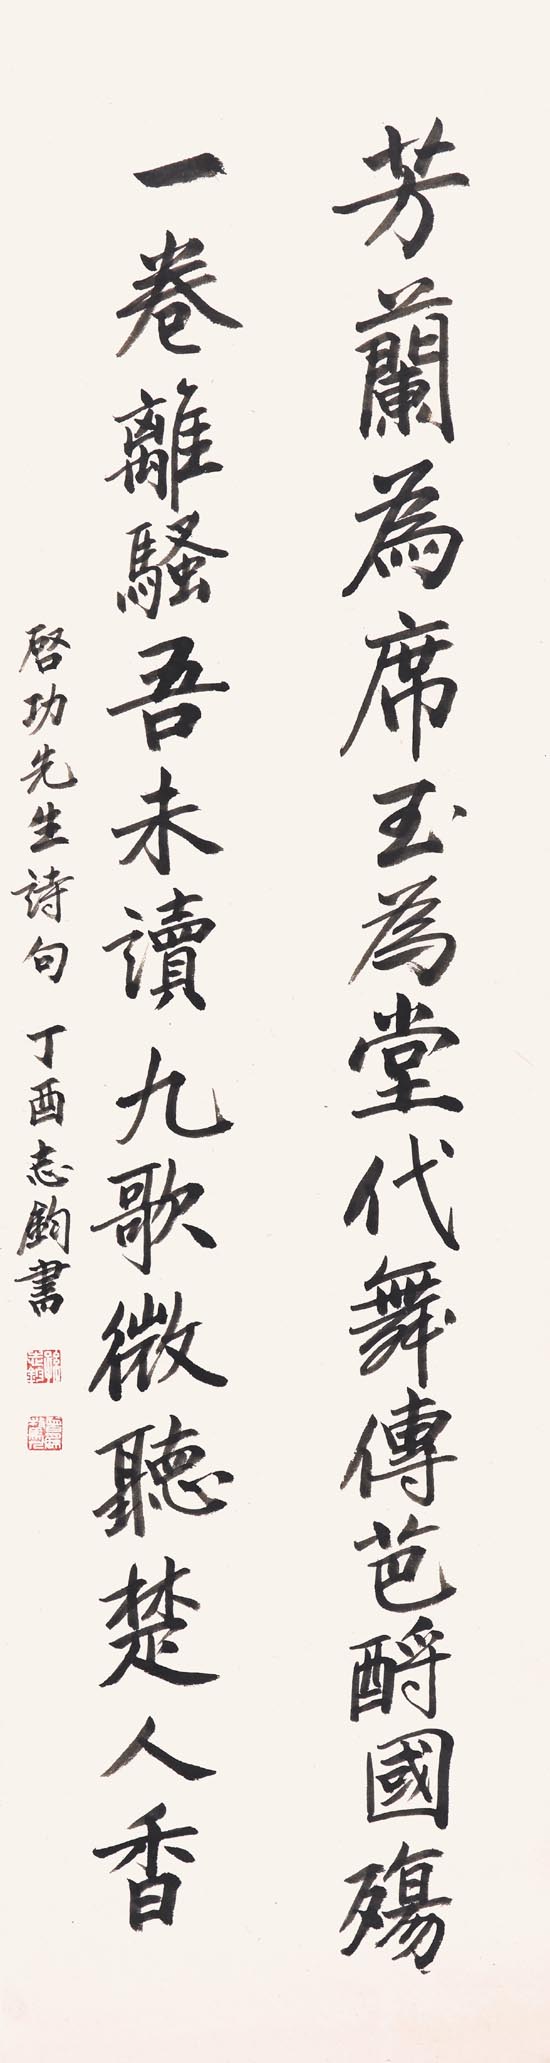 芳蘭為席玉為堂代舞傳芭酹國殤
一卷離騷吾未讀九歌微聽楚人香
啓功先生詩句 丁酉志鈞書